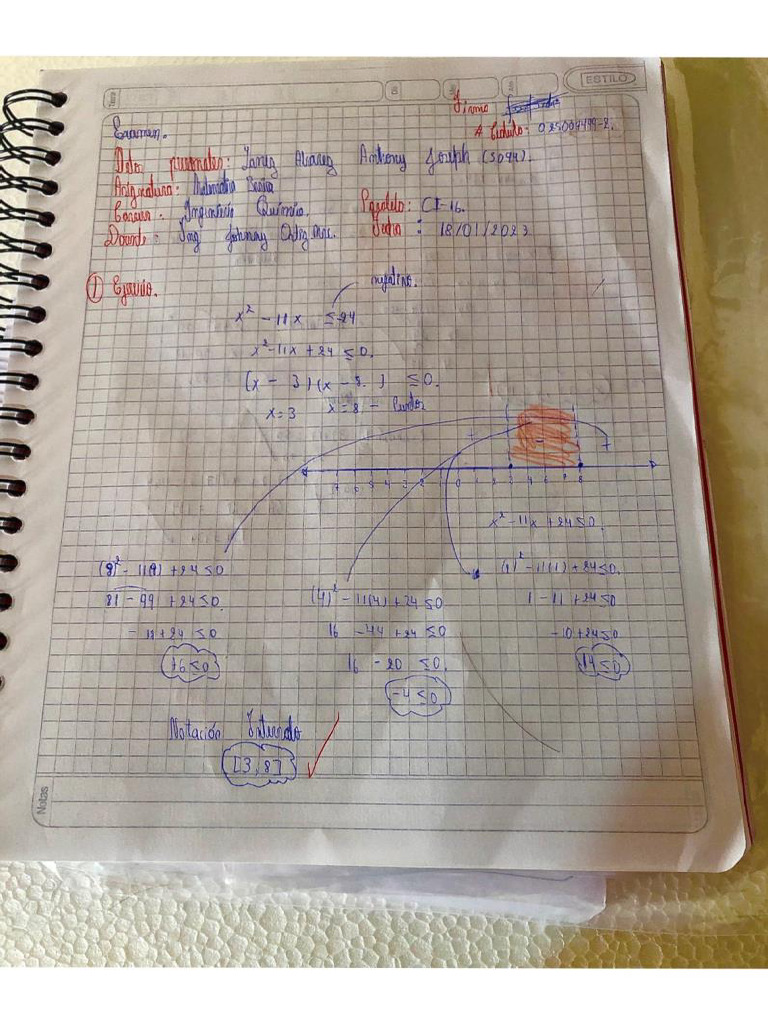 ESTILO
Firma
Examen.
# Cédula: 025004499-2.
Datos personales: Yanez Alvarez Anthony Joseph (5094).
Asignatura: Matemática Básica
Carrera: Ingeniería Química. Paralelo: CI-16.
Docente: Ing Johnny Ortiz Msc. Fecha: 18/01/2023
① Ejercicio.
negativo.
x² - 11x ≤ -24
x² - 11x + 24 ≤ 0.
(x - 3)(x - 8.) ≤ 0.
x = 3 x = 8 - Puntos
+ - +
0 1 2 3 4 5 6 7 8
x² - 11x + 24 ≤ 0.
(9)² - 11(9) + 24 ≤ 0
81 - 99 + 24 ≤ 0.
- 18 + 24 ≤ 0
+6 ≤ 0
(4)² - 11(4) + 24 ≤ 0
16 - 44 + 24 ≤ 0
16 - 20 ≤ 0.
-4 ≤ 0
(1)² - 11(1) + 24 ≤ 0.
1 - 11 + 24 ≤ 0
- 10 + 24 ≤ 0
14 ≤ 0
Notación Intervalo
[3,8]
Notas